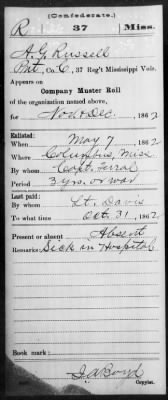 (Confederate.)
R 37 Miss.
A G Russell
Pvt, Co. C, 37 Reg't Mississippi Vols.
Appears on
Company Muster Roll
of the organization named above,
for Nov & Dec, 1862
Enlisted:
When May 7, 1862
Where Columbus, Miss
By whom Capt. Terral
Period 3 yrs. or war
Last paid:
By whom Lt. Davis
To what time Oct. 31, 1862
Present or absent Absent
Remarks: Sick in Hospital
Book mark: